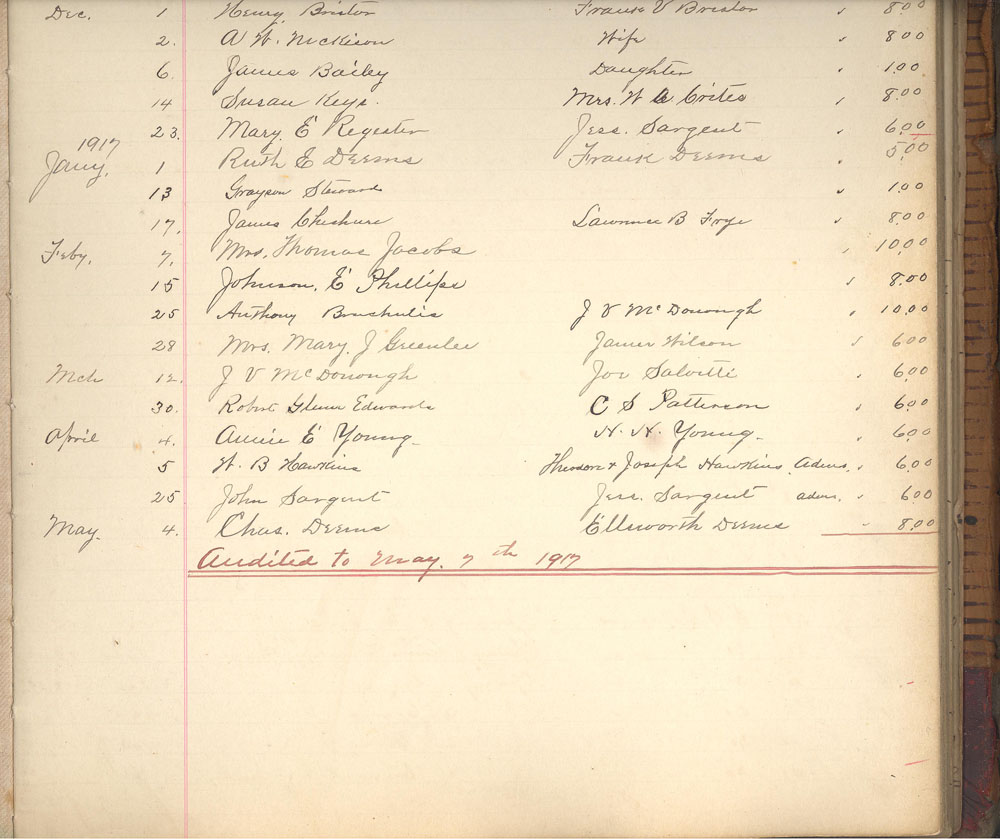 Dec. 1 Henry Bristor Frank V Bristor 8.00
2. A W. McKison Wife " 8.00
6. James Bailey Daughter " 1.00
14 Susan Keys. Mrs. W A Crites " 8.00
23. Mary E Register Jess. Sargent " 6.00
1917
Jany, 1 Ruth E Deems Frank Deems " 5.00
13 Grayson Steward " 1.00
17, James Cheshire Lawrence B Frye " 8.00
Feby, 7, Mrs. Thomas Jacobs " 10.00
15 Johnson, E Phillips " 8.00
25 Anthony J V McDonough " 10.00
28 Mrs. Mary. J Greenlee James Wilson " 6.00
Mch 12. J V McDonough Joe Salvitti " 6.00
30. Robert Glenn Edwards C S Patterson " 6.00
April 4. Annie E Young N. N. Young. " 6.00
5 W. B Hawkins Theodore & Joseph Hawkins, Adms. " 6.00
25 John Sargent Jess. Sargent adm. " 6.00
May. 4. Chas. Deems Ellsworth Deems " 8.00
Audited to May. 7th 1917